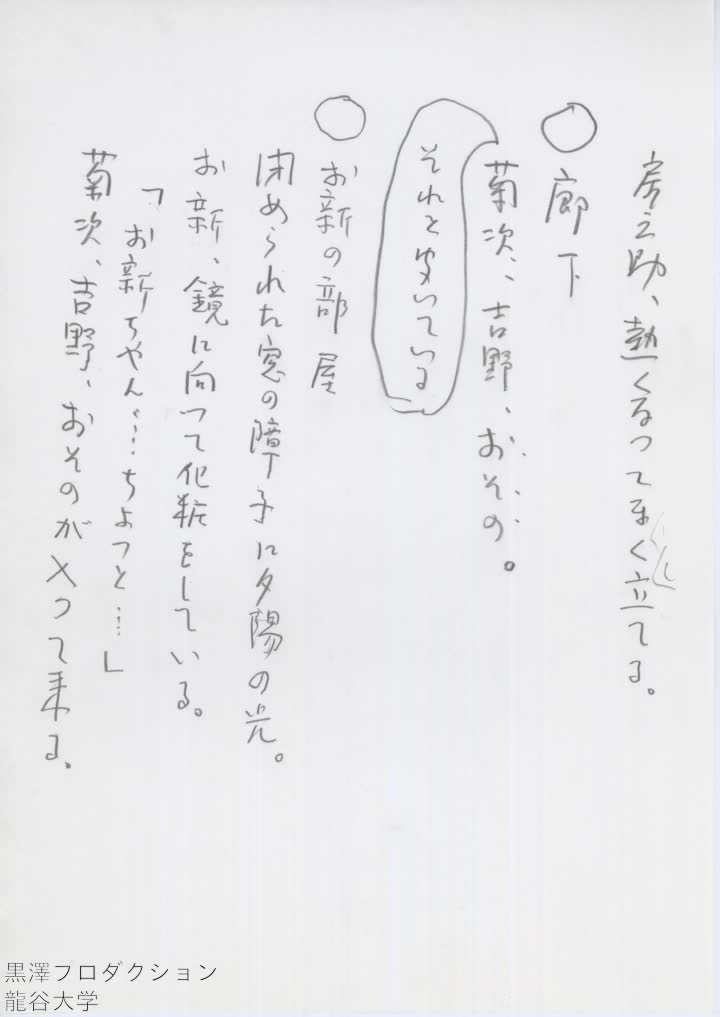 房之助、熱くなつてまくし立てる。
○ 廊下
菊次、吉野、おその。
それを聞いている
○ お新の部屋
閉められた窓の障子に夕陽の光。
お新、鏡に向つて化粧をしている。
「お新ちやん……ちよつと……」
菊次、吉野、おそのが入つて来る。
黒澤フロダクション
龍谷大学